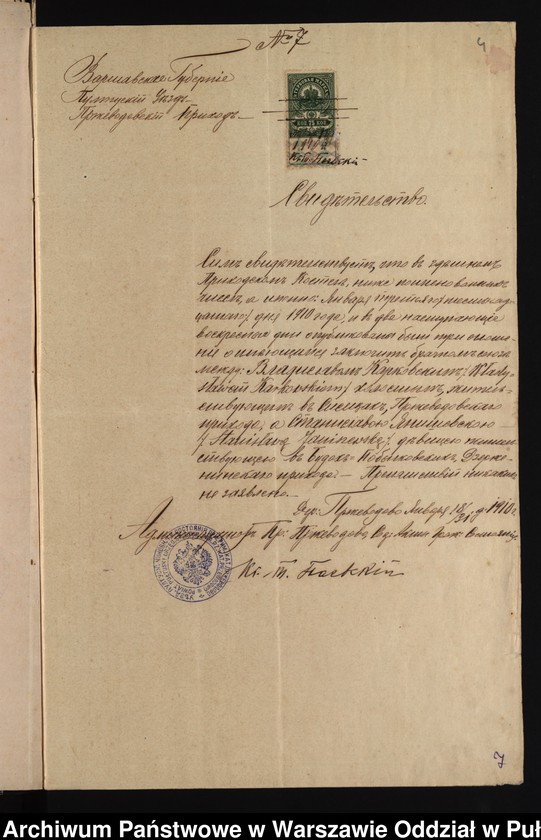 № 7
4
Варшавская Губернія
Пултускій Уѣздъ
Пржеводовскій Приходъ
КОП 75 КОП
Свидѣтельство.
Симъ свидѣтельствуетъ, что въ здѣшнемъ
Приходскомъ Костелѣ, ниже поименованныхъ
числъ, а именно: Января
дня 1910 года, и въ два наступающіе
воскресные дни опубликованы были три оглаше-
нія о имѣющимся заключить брачномъ союзѣ
между: Владиславомъ Карковскимъ /Włady-
sławem Karkowskim/ холостымъ, житель-
ствующимъ въ Пржеводовскаго
прихода, а Станиславою Янишевскою
/Stanisławą Janiszewską/ дѣвицею житель-
ствующею въ Будахъ Дзержe-
нинскаго прихода. – Притязаній никакихъ
не заявлено.
Пржеводово Января 18/31 дня 1910 г.
Администраторъ Пр: Пржеводово
Кс. Т.
7
Archiwum Państwowe w Warszawie Oddział w Puł